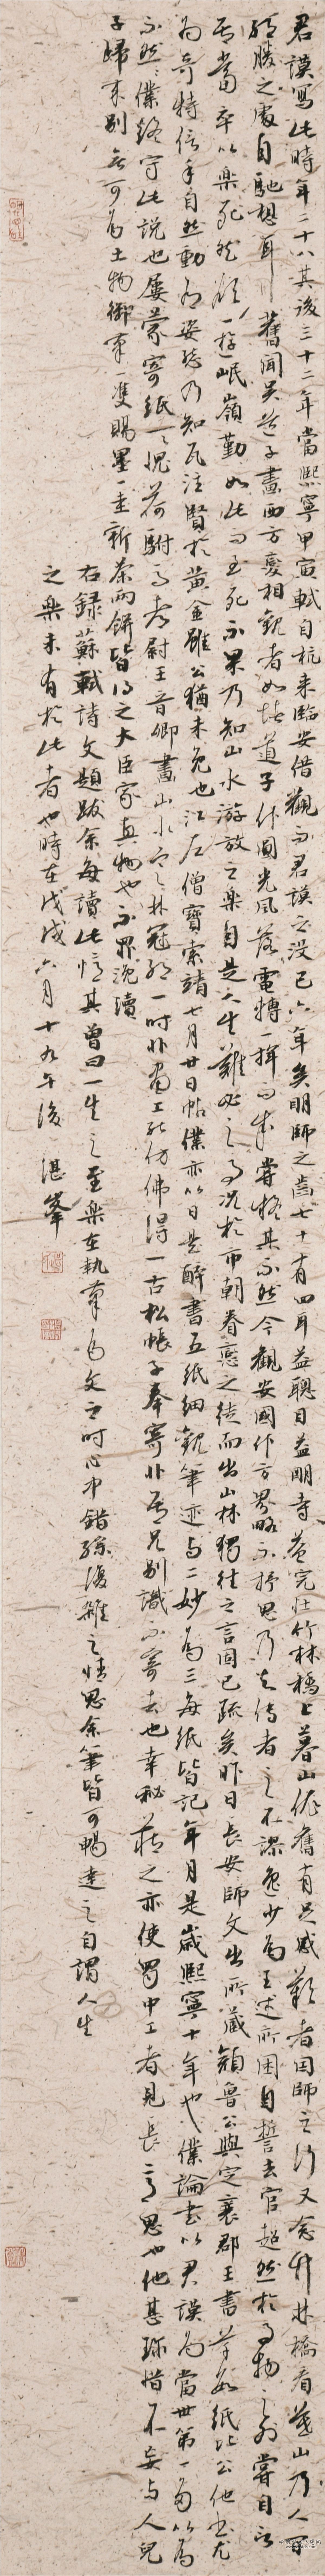 君謨寫此時年二十八其後三十二年當熙寧甲寅軾自杭来臨安借觀而君謨之没已六年矣明師之齒七十有四耳益聰目益明寺益完壮竹林橋上暮山依舊有足感歎者因師之行又念竹林橋看暮山乃人間
絕勝之處自馳想耳舊聞吴道子畫西方變相觀者如堵道子作圓光風落電轉一揮而成嘗疑其不然今觀安國作方界略不抒思乃知傳者之不謬逸少為王述所困自誓去官超然於事物之外嘗自言
吾當卒以樂死然欲一遊岷嶺勤如此而至死不果乃知山水游放之樂自是人生難必之事况於市朝眷戀之徒而出山林獨往之言固已疏矣昨日長安師文出所藏顏魯公與定襄郡王書草數紙比公他書尤
為奇特信手自然動有姿態乃知瓦注賢於黄金雖公猶未免也江左僧寶索靖七月廿日帖僕亦以日是醉書五紙細觀筆迹与二妙為三每紙皆記年月是歲熙寧十年也僕論書以君謨為當世第一多以為
不然然僕終守此說也屢蒙寄紙一一愧荷駙馬都尉王晉卿畫山水寒林冠絕一時非畫工能仿佛得一古松帳子奉寄非吾兄别識不寄去也幸秘藏之亦使蜀中工者見長意思也他甚珍惜不妄与人兒
子歸来别無可為土物御筆一雙賜墨一圭新茶兩餅皆得之大臣家真物也不罪浼瀆
右録蘇軾詩文題跋余每讀此憶其曾曰一生之至樂在執筆為文之时心中錯綜復雜之情思余筆皆可暢達之自謂人生
之樂未有於此者也時在戊戌六月十九午後湛峰